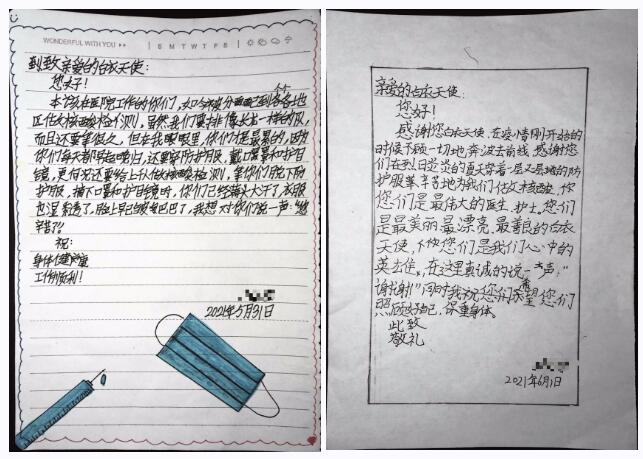 WONDERFUL WITH YOU
S M T W T F S
致亲爱的白衣天使：
您好！
本该在医院工作的你们，如今被分画到各各地
区做核酸检测，虽然我们要排像长龙一样的队，
而且还要等很久，但在我眼里，你们才是最累的，因为
你们每天都早起晚归，还要穿防护服，戴口罩和护目
镜，更何况还要给上队做核酸检测，拿你们脱下防
护服，摘下口罩和护目镜时，你们已经满头大汗了，衣服
也湿透了，脸上早已皱巴巴了，我想对你们说一声：“您
辛苦了！”
祝：
身体健康
工作顺利！
2021年5月31日
亲爱的白衣天使：
您好！
感谢您白衣天使，在疫情刚开始的
时候不顾一切地奔波去前线，感谢您
们在烈日炎炎的夏天穿着一层又层堵的防
护服辛苦地为我们做核酸，你
您们是最伟大的医生、护士。您们
是最美丽最漂亮、最善良的白衣
天使，您们是我们心中的
英雄，在这里真诚的说一声：“
谢谢！”同时我祝您们希望您们
照顾好自己，保重身体。
此致
敬礼
2021年6月1日